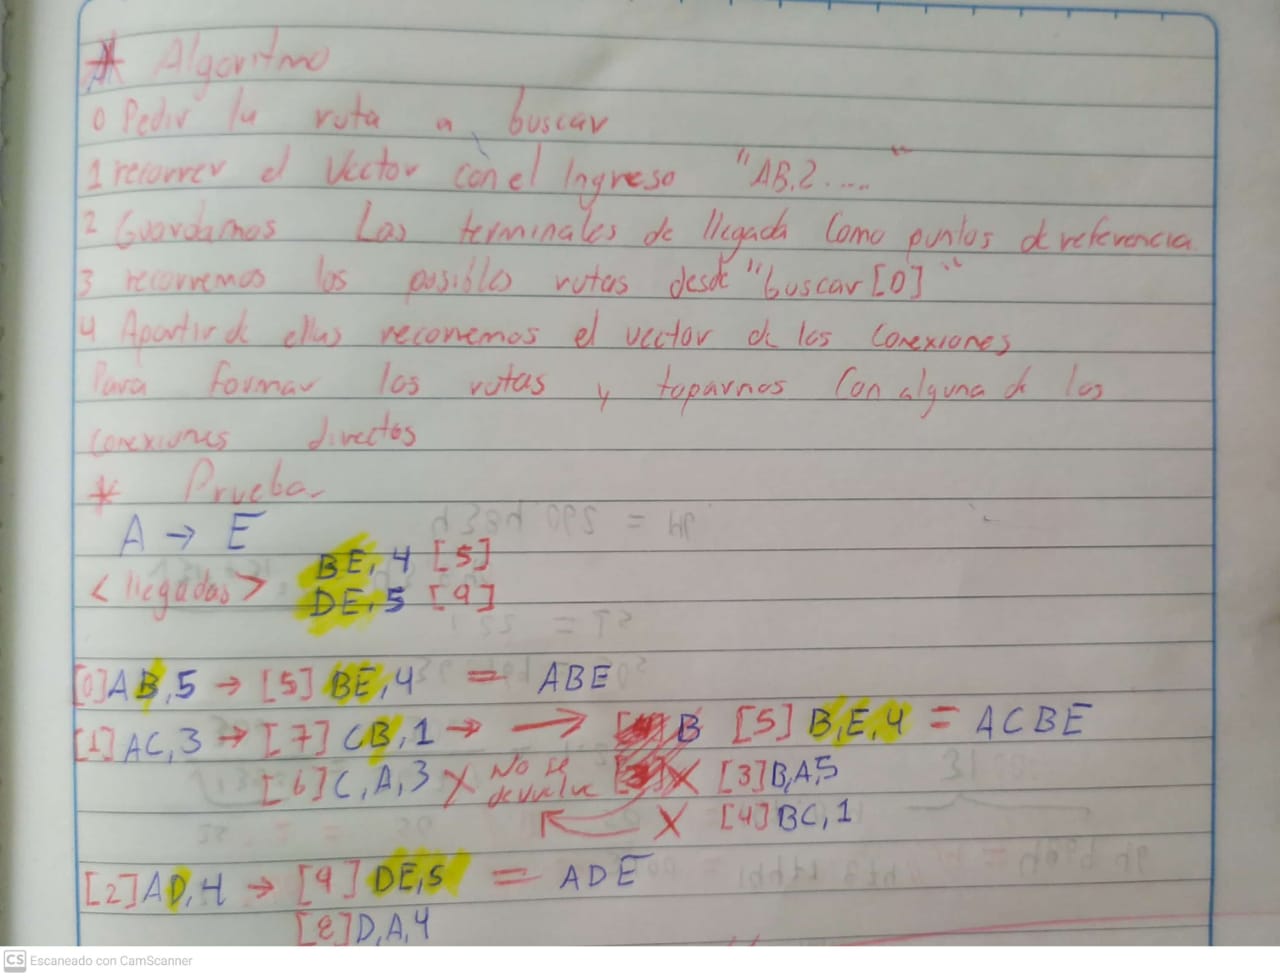 * Algoritmo
0 Pedir la ruta a buscar
1 recorrer el Vector con el Ingreso "AB,2....."
2 Guardamos Las terminales de llegada Como puntos de referencia
3 recorremos las posibles rutas desde "buscar[0]"
4 Apartir de ellas recorremos el vector de las Conexiones
Para formar las rutas y toparnos Con alguna de las
conexiones directas
* Prueba
A → E
BE, 4 [5]
<llegadas> DE, 5 [9]
[0]AB,5 → [5] BE,4 = ABE
[1] AC,3 → [7] CB,1 → → B [5] B,E,4 = ACBE
[6]C,A,3 X No se devuelve X [3]B,A,5
X [4]BC,1
[2]AD,4 → [9] DE,5 = ADE
[8]D,A,4
CS Escaneado con CamScanner